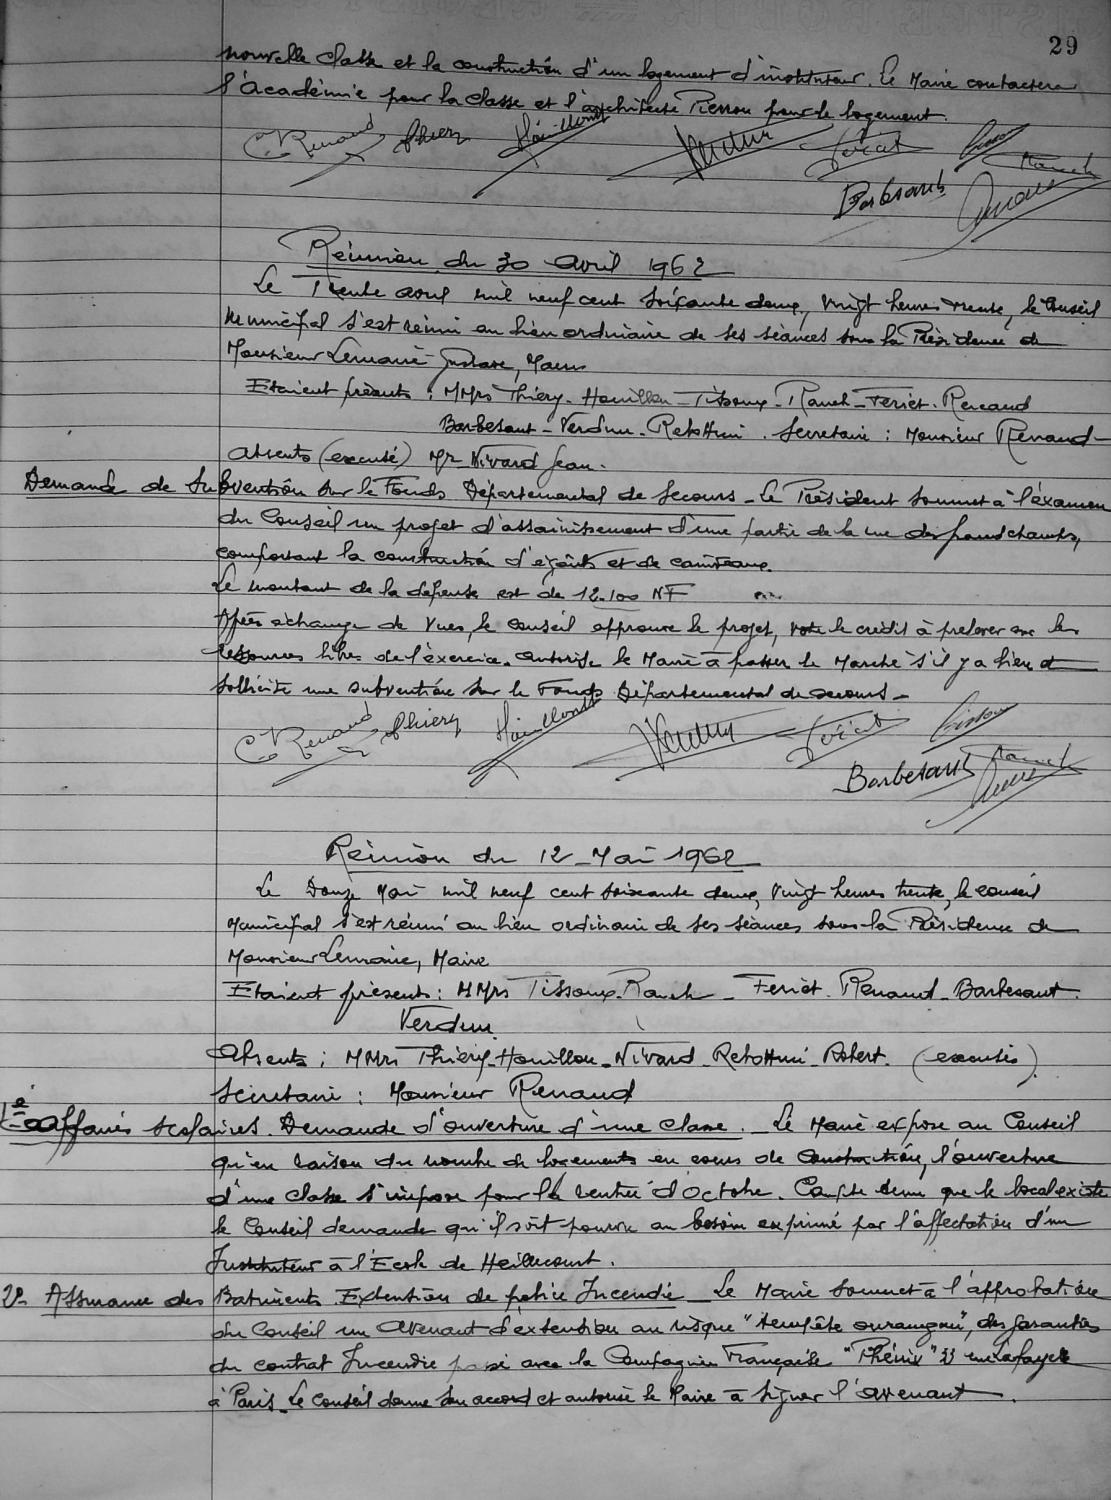 29
nouvelle classe et la construction d'un logement d'instituteur. Le Maire contactera
l'Académie pour la classe et l'architecte Pierron pour le logement.
C Renaud Thiery Houillon Verdun Feriet Tissoux
Rauch
Barbesant
Réunion du 30 avril 1962
Le Trente avril mil neuf cent soixante deux, vingt heures trente, le Conseil
Municipal s'est réuni au lieu ordinaire de ses séances sous la Présidence de
Monsieur Lemaire Gustave, Maire
Etaient présents : MMrs Thiéry - Houillon - Tissoux - Rauch - Feriet - Renaud
Barbesant - Verdun - Retottini. Secrétaire : Monsieur Renaud -
Absents (excusé) Mr Nivard Jean.
Demande de Subvention sur le Fonds Départemental de Secours - Le Président soumet à l'examen
du Conseil un projet d'assainissement d'une partie de la rue des grands champs,
comportant la construction d'égouts et de caniveaux.
Le montant de la dépense est de 12.100 NF
Après échange de vues, le conseil approuve le projet, vote le crédit à prélever sur les
ressources libres de l'exercice. autorise le Maire à passer le Marché s'il y a lieu et
sollicite une subvention sur le Fonds Départemental de secours -
C Renaud Thiery Houillon Verdun Feriet Tissoux
Barbesant Rauch
Réunion du 12 Mai 1962
Le Douze Mai mil neuf cent soixante deux, vingt heures trente, le conseil
Municipal s'est réuni au lieu ordinaire de ses séances sous la Présidence de
Monsieur Lemaire, Maire
Etaient présents : MMrs Tissoux - Rauch - Feriet. Renaud - Barbesant.
Verdun
Absents : MMrs Thiéry - Houillon - Nivard - Retottini - Robert. (excusés).
Secrétaire : Monsieur Renaud
1e - Affaires scolaires. Demande d'ouverture d'une classe. - Le Maire expose au Conseil
qu'en raison du nombre de logements en cours de construction, l'ouverture
d'une classe s'impose pour la rentrée d'Octobre. Compte tenu que le local existe
le Conseil demande qu'il soit pourvu au besoin exprimé par l'affectation d'un
Instituteur à l'Ecole de Heillecourt.
2e - Assurance des Batiments. Extention de police Incendie - Le Maire soumet à l'approbation
du Conseil un avenant d'extension au risque "tempête ouragan", des garanties
du contrat Incendie passé avec la Compagnie Française "Phénix" 33 rue Lafayette
à Paris - Le Conseil donne son accord et autorise le Maire à signer l'avenant.